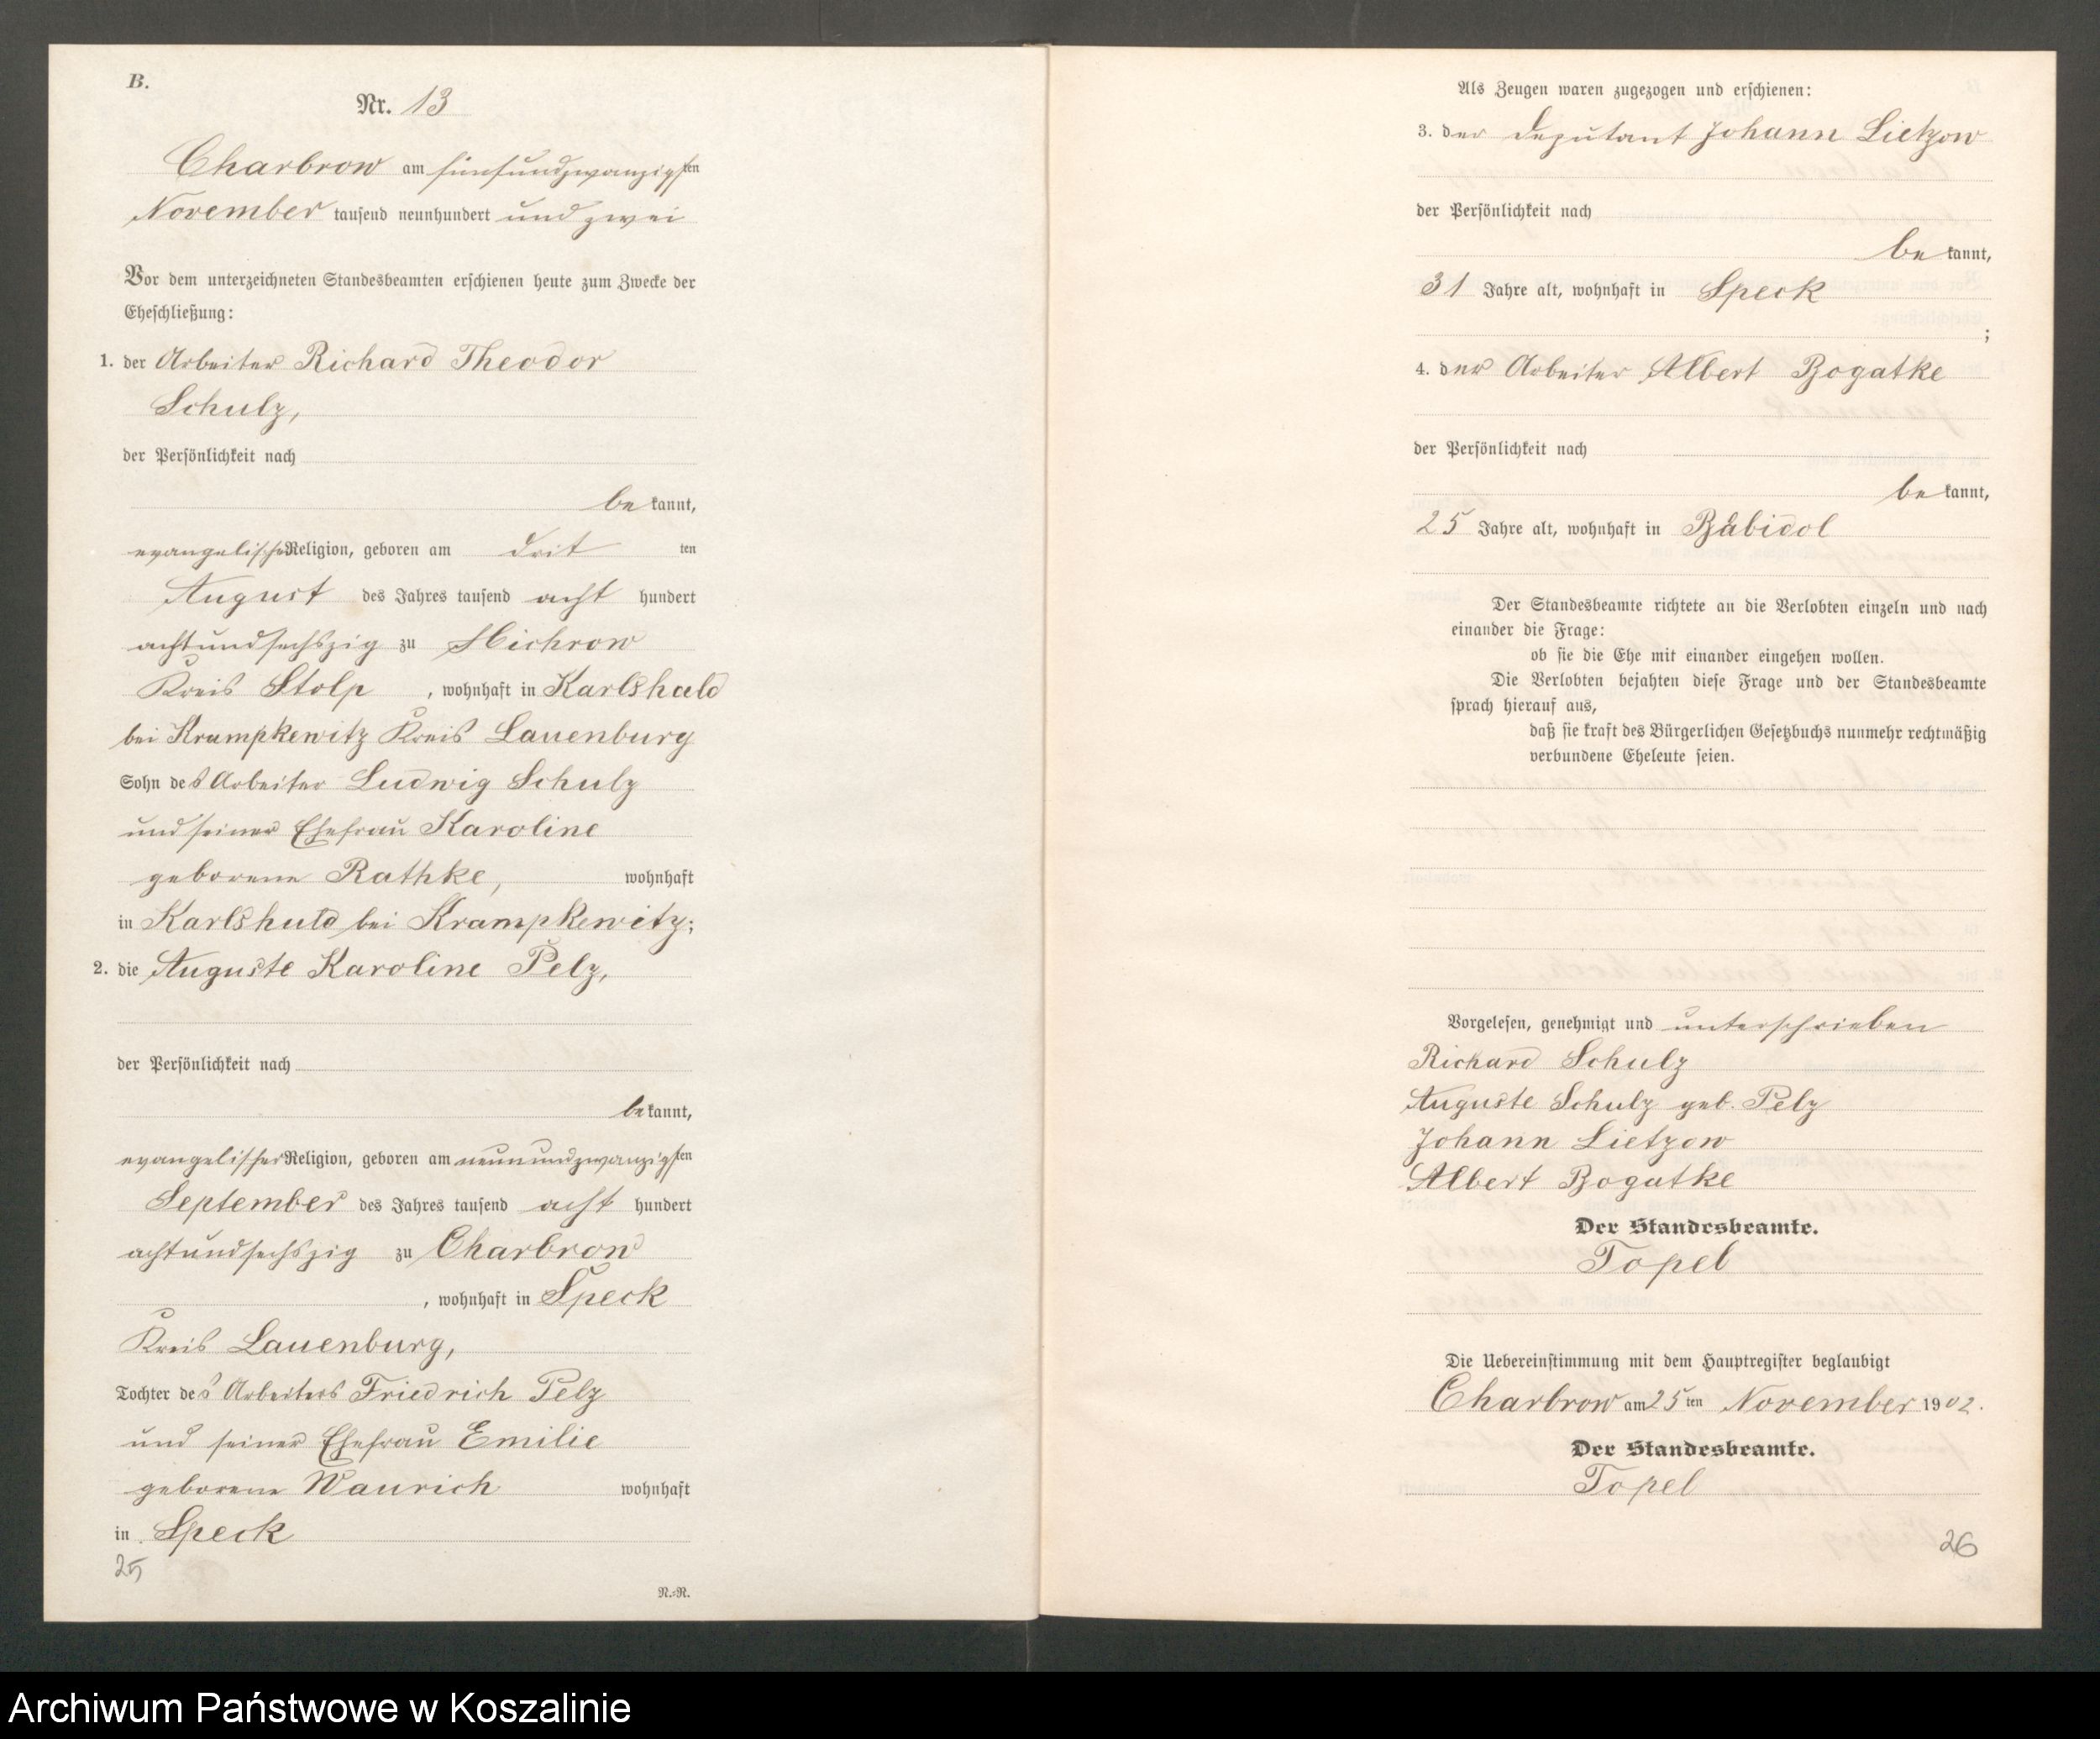 B.
Nr. 13
Charbrow am fünfundzwanzigsten
November tausend neunhundert und zwei
Vor dem unterzeichneten Standesbeamten erschienen heute zum Zwecke der
Eheschließung:
1. der Arbeiter Richard Theodor
Schulz,
der Persönlichkeit nach
be kannt,
evangelischer Religion, geboren am drit ten
August des Jahres tausend acht hundert
achtundsechszig zu
Kreis Stolp , wohnhaft in Karlshuld
bei Krampkewitz Kreis Lauenburg
Sohn des Arbeiter Ludwig Schulz
und seiner Ehefrau Karoline
geborene Rathke, wohnhaft
in Karlshuld bei Krampkewitz;
2. die Auguste Karoline Pelz,
der Persönlichkeit nach
be kannt,
evangelischer Religion, geboren am neunundzwanzigsten
September des Jahres tausend acht hundert
achtundsechszig zu Charbrow
, wohnhaft in Speck
Kreis Lauenburg,
Tochter des Arbeiters Friedrich Pelz
und seiner Ehefrau Emilie
geborene Waurich wohnhaft
in Speck
25
N.=N.
Als Zeugen waren zugezogen und erschienen:
3. der Deputant Johann Lietzow
der Persönlichkeit nach
be kannt,
31 Jahre alt, wohnhaft in Speck
;
4. der Arbeiter Albert Bogatke
der Persönlichkeit nach
be kannt,
25 Jahre alt, wohnhaft in Babidol
Der Standesbeamte richtete an die Verlobten einzeln und nach
einander die Frage:
ob sie die Ehe mit einander eingehen wollen.
Die Verlobten bejahten diese Frage und der Standesbeamte
sprach hierauf aus,
daß sie kraft des Bürgerlichen Gesetzbuchs nunmehr rechtmäßig
verbundene Eheleute seien.
Vorgelesen, genehmigt und unterschrieben
Richard Schulz
Auguste Schulz geb. Pelz
Johann Lietzow
Albert Bogatke
Der Standesbeamte.
Topel
Die Uebereinstimmung mit dem Hauptregister beglaubigt
Charbrow am 25 ten November 1902.
Der Standesbeamte.
Topel
26
Archiwum Państwowe w Koszalinie